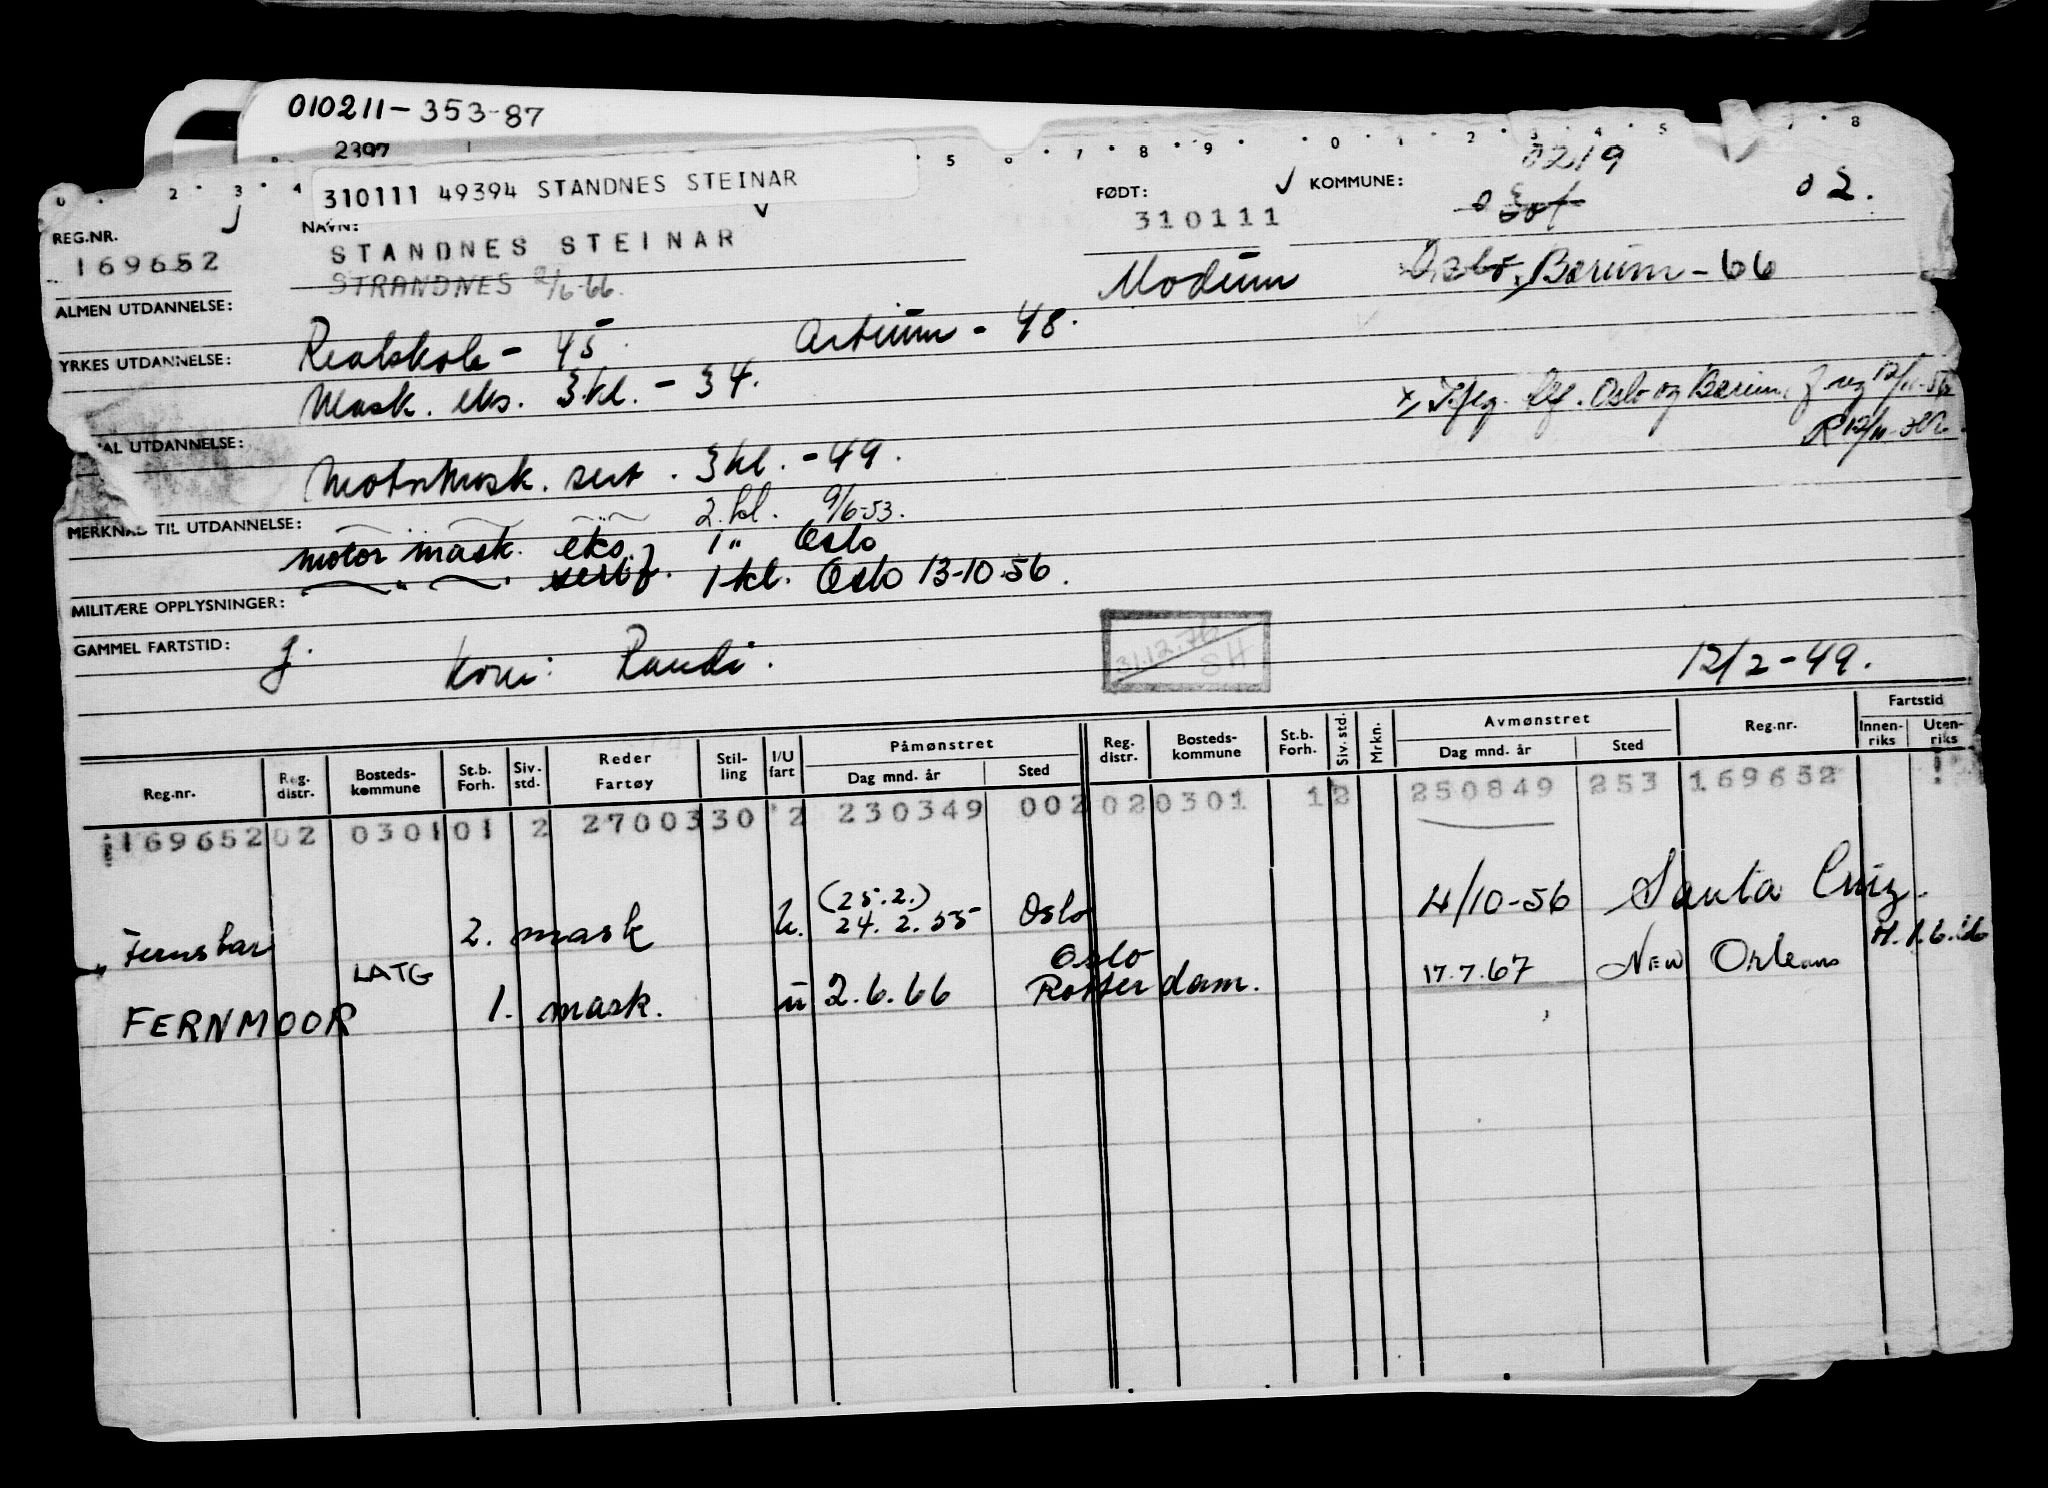 010211-353-87
2397
310111 49394 STANDNES STEINAR
REG.NR.
169652
NAVN:
STANDNES STEINAR
STRANDNES 2/6-66.
FØDT:
310111
Modum
KOMMUNE:
0219
02.
Oslo, Bærum - 66
ALMEN UTDANNELSE:
Realskole - 45
Artium - 48.
YRKES UTDANNELSE:
Mask. eks. 3 kl. - 34.
Oslo og Bærum
AL UTDANNELSE:
Motormask. sert. 3 kl. - 49.
2. kl. 9/6-53.
MERKNAD TIL UTDANNELSE:
motor mask. eks. 1 " Oslo
" sertf. 1 kl. Oslo 13-10-56.
MILITÆRE OPPLYSNINGER:
GAMMEL FARTSTID: J.
Kone: Randi.
31.12.76
SH
12/2-49.
Reg.nr. Reg. distr. Bosteds-kommune St.b. Forh. Siv. std. Reder Fartøy Stil-ling I/U fart Påmønstret Dag mnd. år Sted Reg. distr. Bosteds-kommune St.b. Forh. Siv. std. Mrkn. Avmønstret Dag mnd. år Sted Reg.nr. Fartstid Innen-riks Uten-riks
169652 02 0301 01 2 2700330 2 230349 002 02 0301 12 250849 253 169652
(25.2.)
2. mask u. 24.2.55 Oslo 4/10-56 Santa Cruz.
LATG Oslo
FERNMOOR 1. mask. u 2.6.66 Rotterdam. 17.7.67 New Orleans